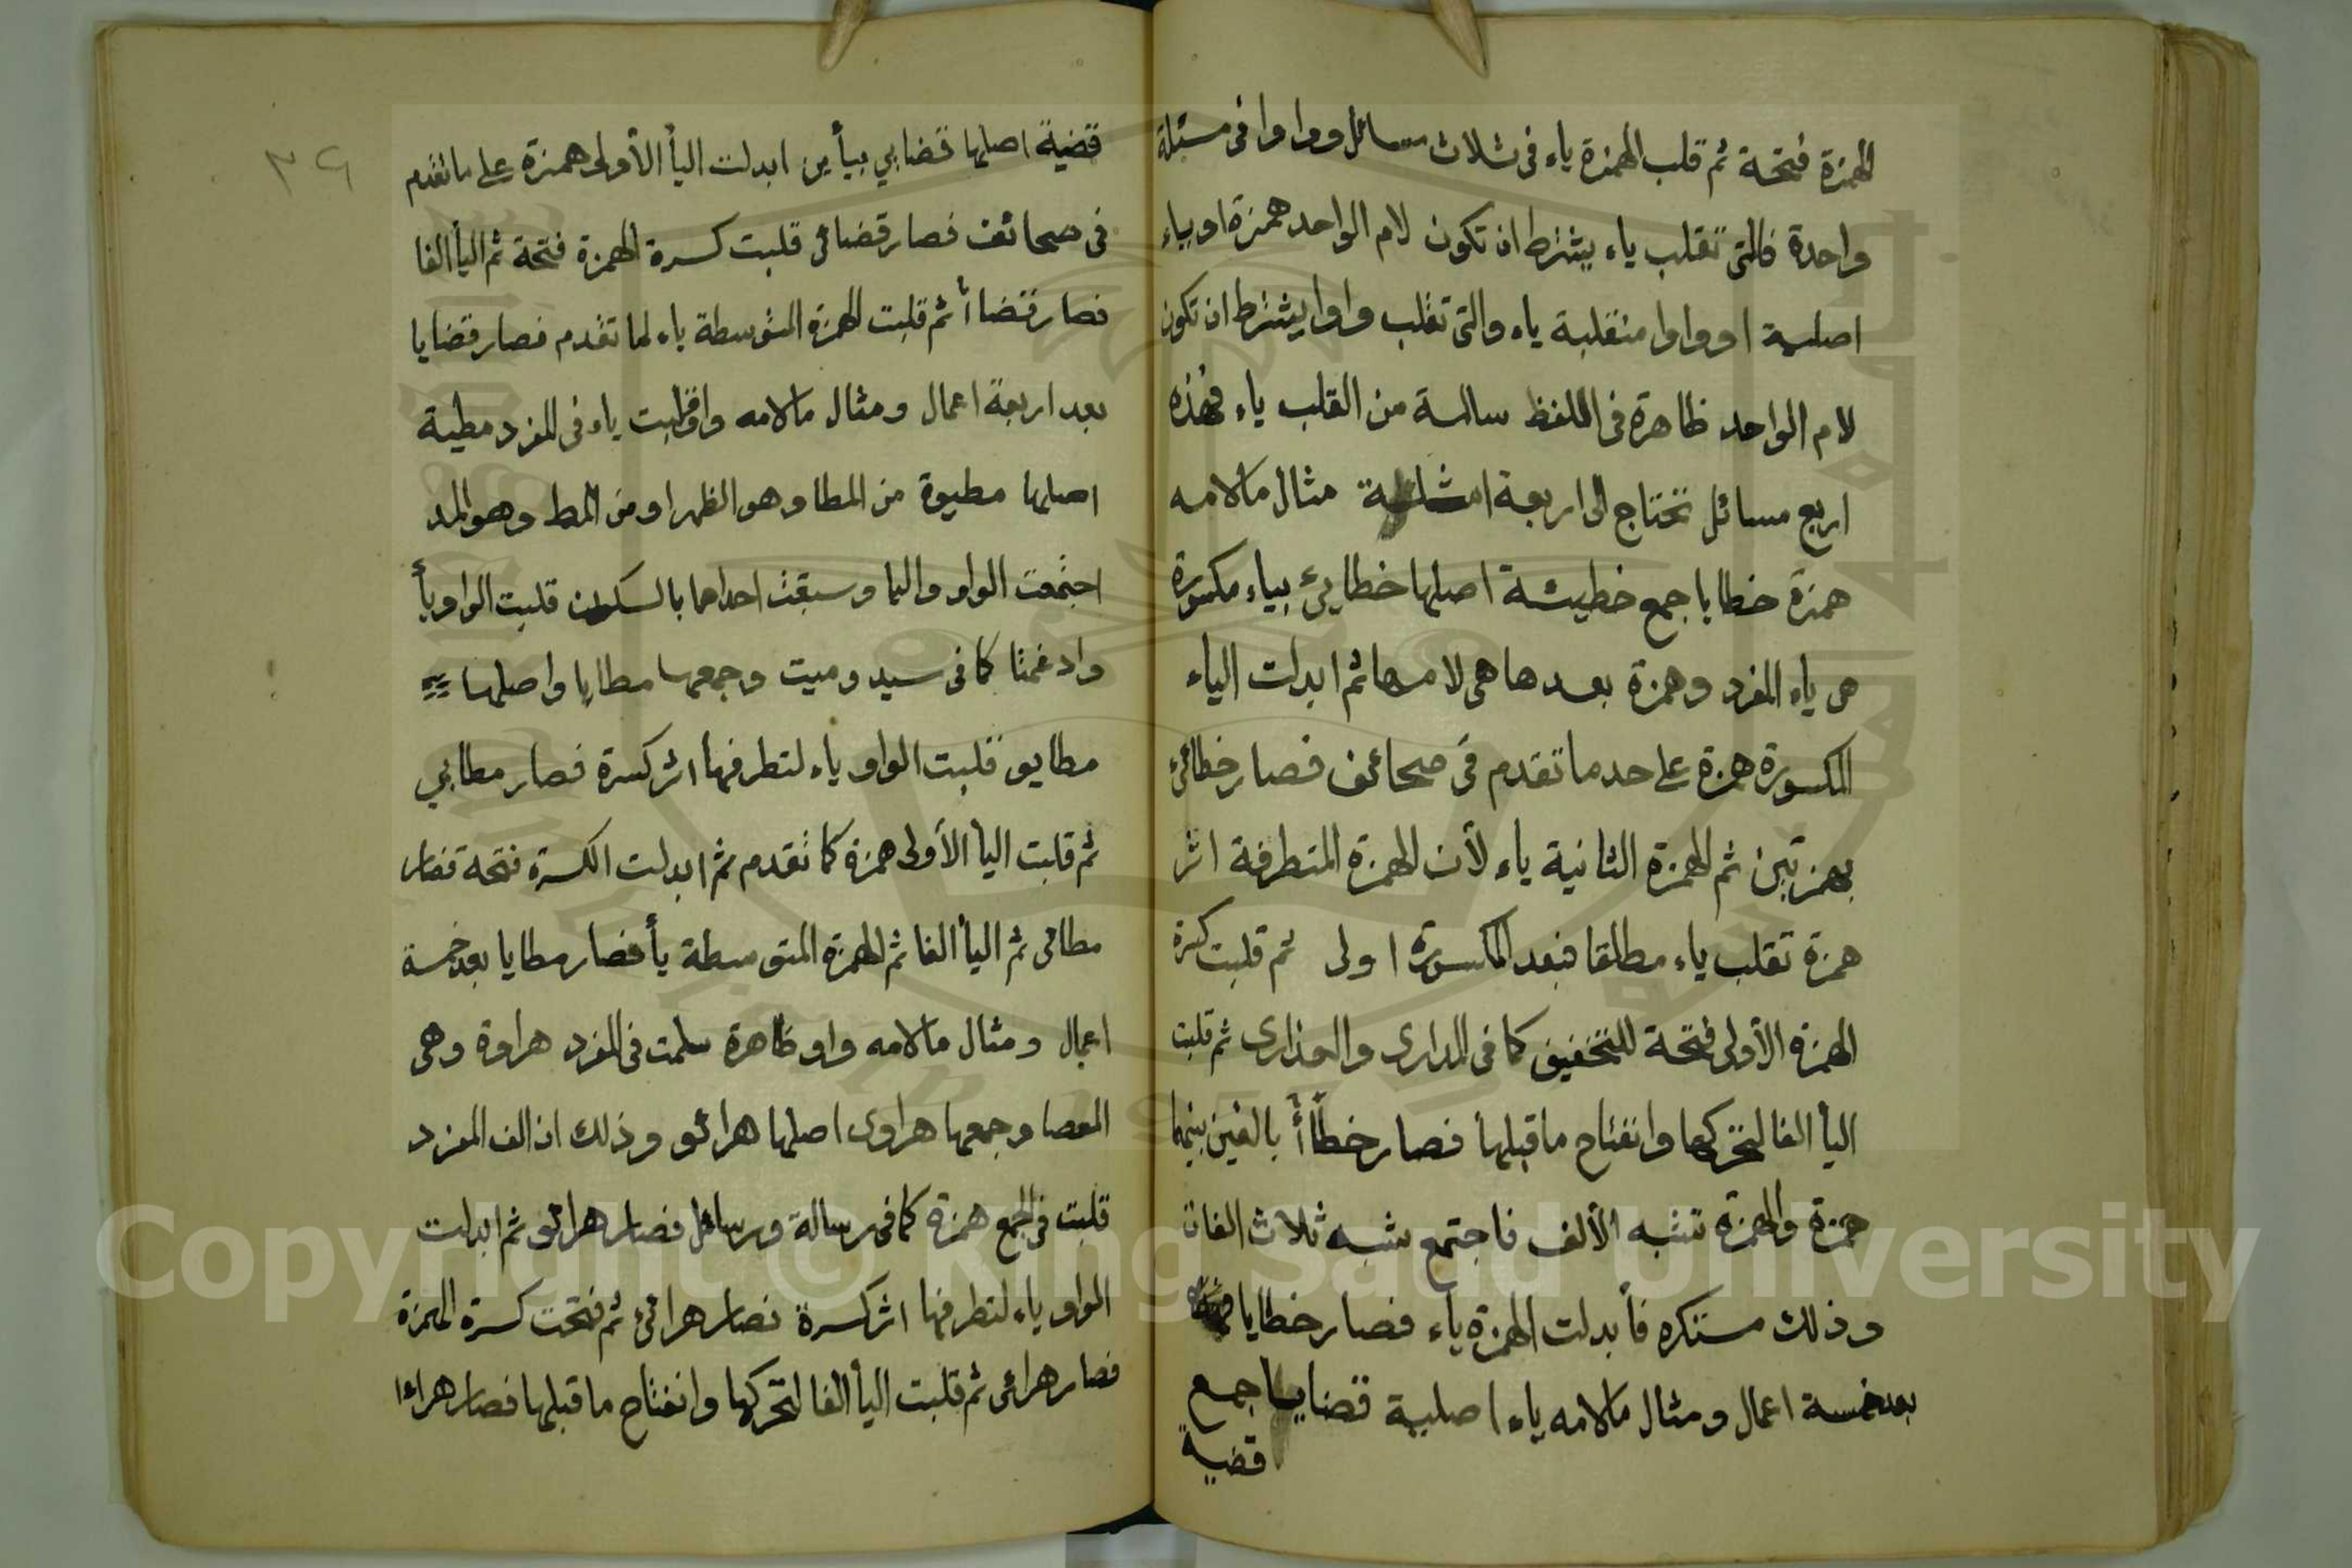 الهمزة فتحة ثم قلب الهمزة ياء فى ثلاث مسائل وواوا فى مسئلة
واحدة فالتى تقلب ياء يشترط ان تكون لام الواحد همزة او ياء
اصلية او واوا منقلبة ياء والتى تقلب واوا يشترط ان تكون
لام الواحد ظاهرة فى اللفظ سالمة من القلب ياء فهذه
اربع مسائل تحتاج الى اربعة امثلة مثال ما لامه
همزة خطايا جمع خطيئة اصلها خطايئ بياء مكسورة
هى ياء المفرد وهمزة بعدها هى لامها ثم ابدلت الياء
المكسورة همزة على حد ما تقدم فى صحائف فصار خطائئ
بهمزتين ثم الهمزة الثانية ياء لأن الهمزة المتطرفة اثر
همزة تقلب ياء مطلقا فبعد المكسورة اولى ثم قلبت كسرة
الهمزة الأولى فتحة للتخفيف كما فى المدارى والعذارى ثم قلبت
اليأ الفا لتحركها وانفتاح ما قبلها فصار خطاأ بالفين بينهما
همزة والهمزة تشبه الألف فاجتمع شبه ثلاث الفات
وذلك مستنكره فأبدلت الهمزة ياء فصار خطايا
بعد خمسة اعمال ومثال ما لامه ياء اصلية قضايا جمع
قضية
٣٩
قضية اصلها قضايي بيأين ابدلت اليأ الأولى همزة على ما تقدم
فى صحائف فصار قضائى قلبت كسرة الهمزة فتحة ثم اليأ الفا
فصار قضاأ ثم قلبت الهمزة المتوسطة ياء لما تقدم فصار قضايا
بعد اربعة اعمال ومثال ما لامه واو قلبت ياء فى المفرد مطية
اصلها مطيوة من المطا وهو الظهر او من المط وهو المد
اجتمعت الواو واليا وسبقت احداهما بالسكون قلبت الواو يأ
وادغمتا كما فى سيد وميت وجمعها مطايا واصلها
مطايو قلبت الواو ياء لتطرفها اثر كسرة فصار مطايي
ثم قلبت اليأ الأولى همزة كما تقدم ثم ابدلت الكسرة فتحة فصار
مطائى ثم اليأ الفا ثم الهمزة المتوسطة يأ فصار مطايا بعد خمسة
اعمال ومثال ما لامه واو ظاهرة سلمت فى المفرد هراوة وهى
العصا وجمعها هراوى اصلها هرائو وذلك ان الف المفرد
قلبت فى الجمع همزة كما فى رسالة ورسائل فصار هرائو ثم ابدلت
الواو ياء لتطرفها اثر كسرة فصار هرائئ ثم فتحت كسرة الهمزة
فصار هرائى ثم قلبت اليأ الفا لتحركها وانفتاح ما قبلها فصار هراءا
Copyright © King Saud University